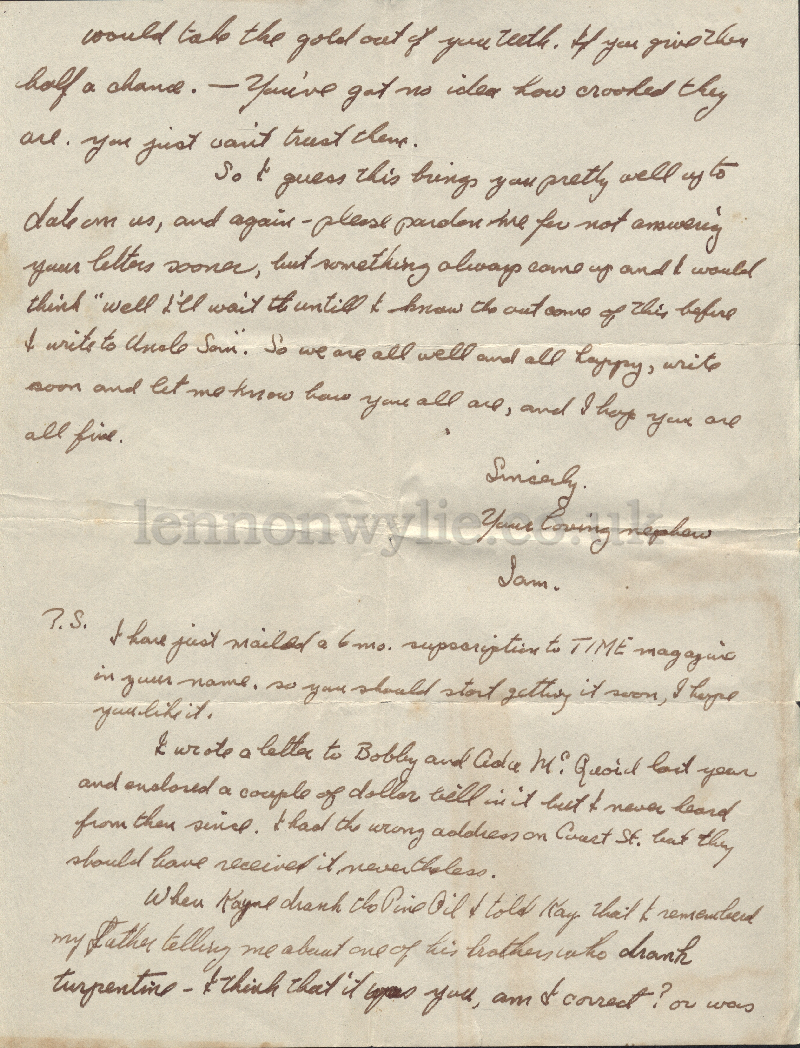 would take the gold out of your teeth. If you give them
half a chance. — You've got no idea how crooked they
are. you just can't trust them.
So I guess this brings you pretty well up to
date on us, and again - please pardon me for not answering
your letters sooner, but something always came up and I would
think "well I'll wait untill I know the outcome of this before
I write to Uncle Sam". So we are all well and all happy, write
soon and let me know how you all are, and I hope you are
all fine.
Sincerly.
Your loving nephew
lennonwylie.co.uk
Sam.
P.S. I have just mailed a 6 mo. supscription to TIME magazine
in your name. so you should start getting it soon, I hope
you like it.
I wrote a letter to Bobby and Ada Mc. Quoid last year
and enclosed a couple of dollar bill in it but I never heard
from them since. I had the wrong address on Court St. but they
should have received it nevertheless.
When Kayne drank the Pine Oil I told Kay that I remembered
my Father telling me about one of his brothers who drank
turpentine - I think that it was you, am I correct? or was